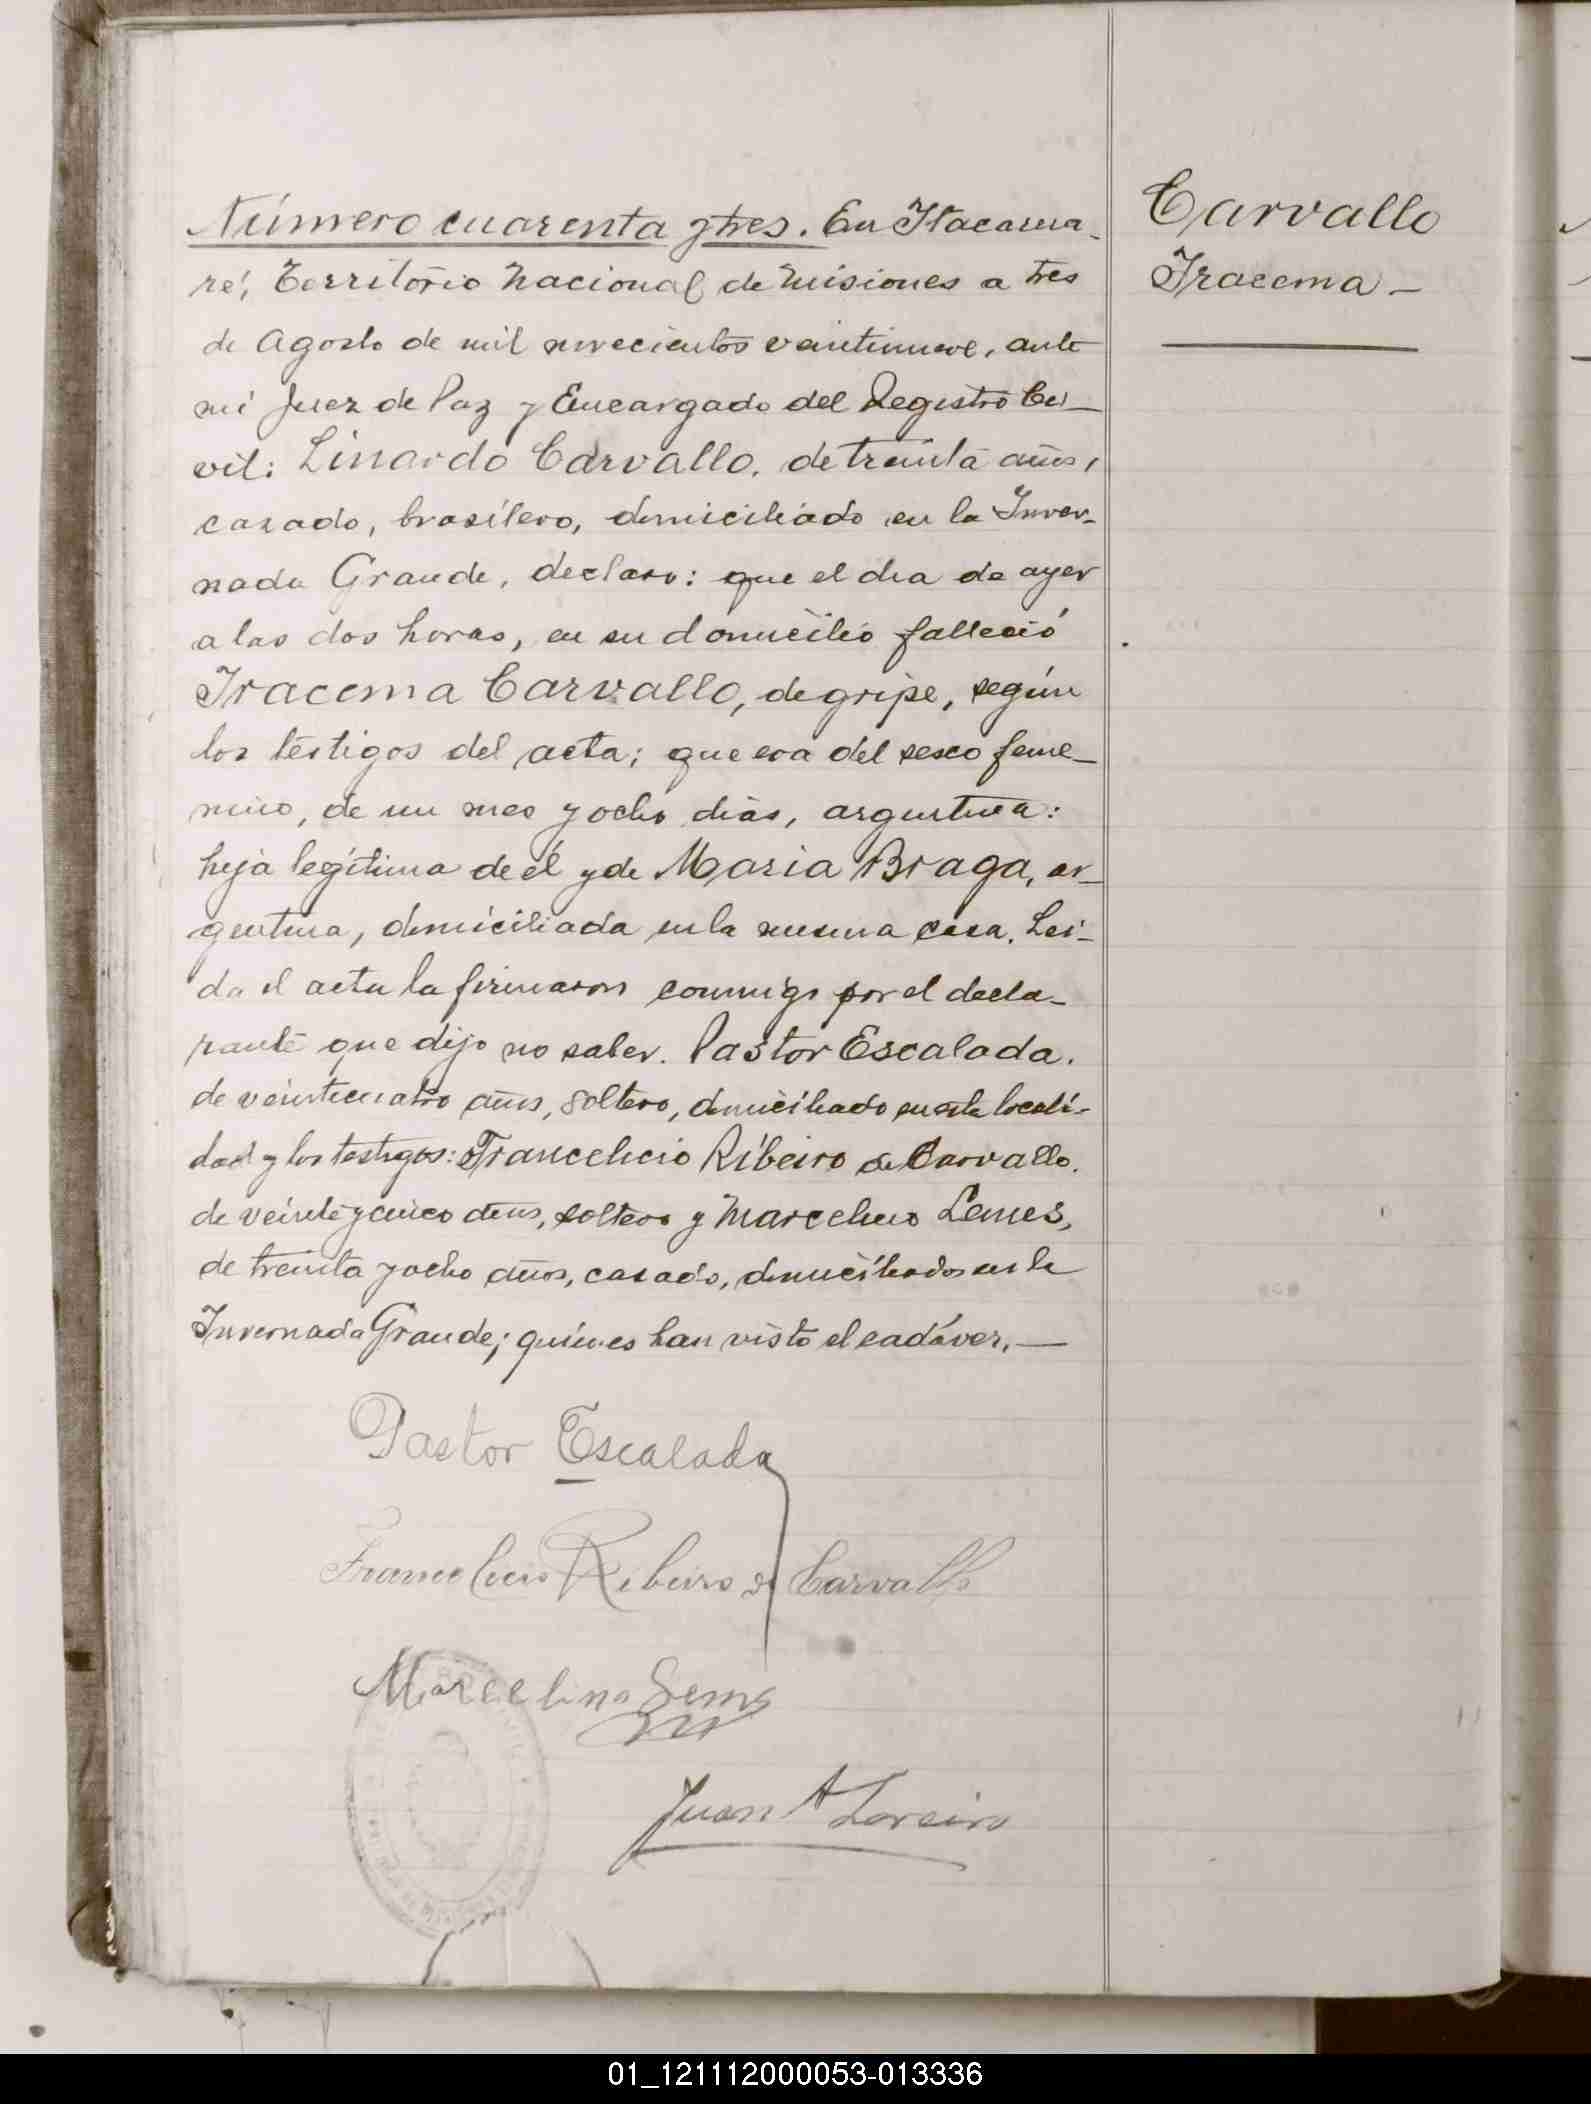 Número cuarenta y tres. En Itacarua-
ré, Territorio Nacional de Misiones a tres
de Agosto de mil novecientos veintinueve, ante
mi Juez de Paz y Encargado del Registro Ci-
vil: Linardo Carvallo, de treinta años,
casado, brasilero, domiciliado en la Inver-
nada Grande, declaro: que el dia de ayer
a las dos horas, en su domicilio falleció
Iracema Carvallo, de gripe, según
los testigos del acta; que era del sexo feme-
nino, de un mes y ocho dias, argentina:
hija legítima de él y de Maria Braga, ar-
gentina, domiciliada en la misma casa. Lei-
da el acta la firmaron conmigo por el decla-
rante que dijo no saber. Pastor Escalada,
de veinticuatro años, soltero, domiciliado en esta locali-
dad y los testigos: Francelicio Ribeiro de Carvallo,
de veinte y cinco años, soltero y Marcelino Lemes,
de treinta y ocho años, casado, domiciliados en la
Invernada Grande; quienes han visto el cadáver.—
Carvallo
Iracema—
Pastor Escalada
Francelicio Ribeiro de Carvallo
Marcelino Lemes
Juan A Loreiro
01_121112000053-013336